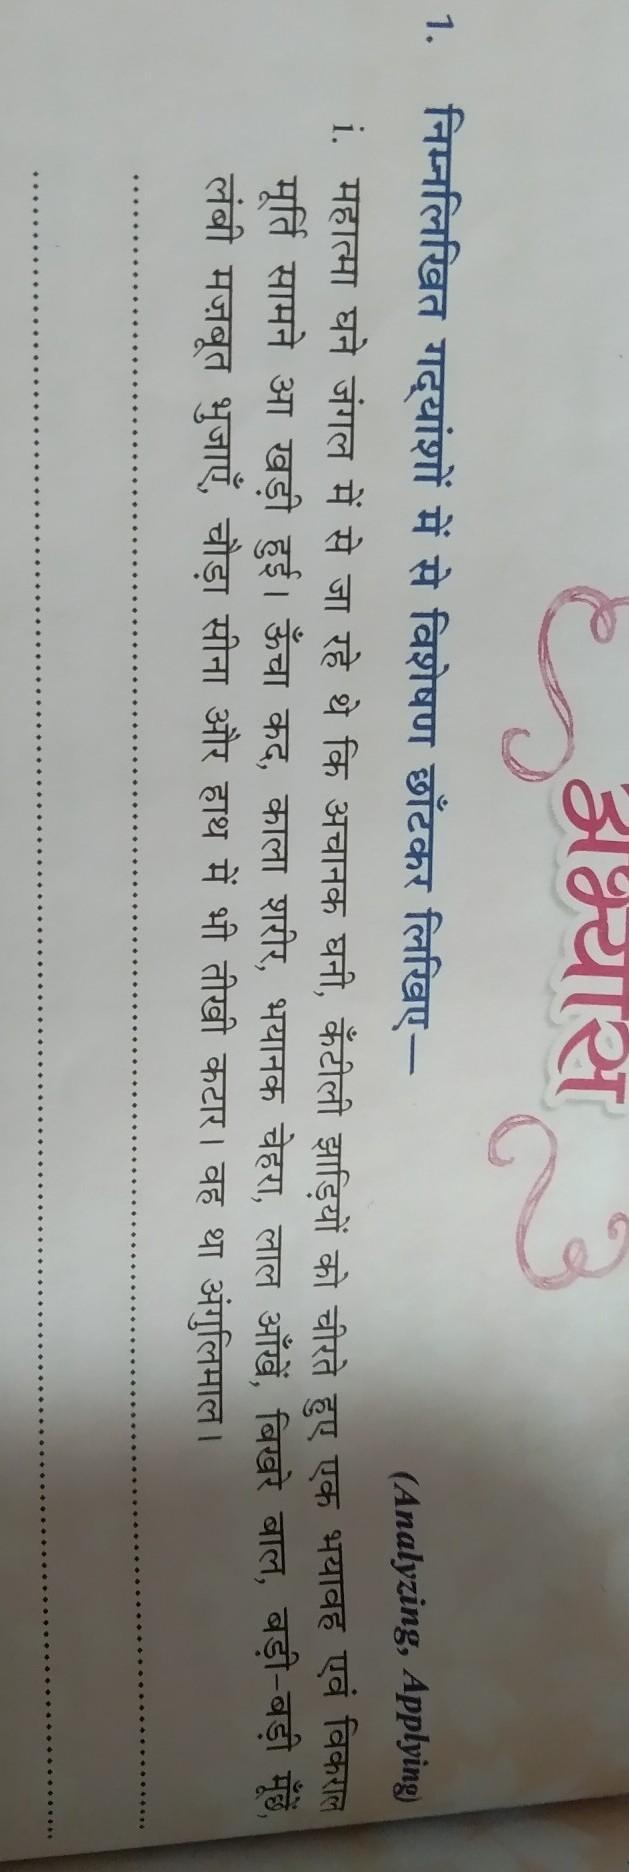 अभ्यास
1. निम्नलिखित गद्यांशों में से विशेषण छाँटकर लिखिए—
(Analyzing, Applying)
i. महात्मा घने जंगल में से जा रहे थे कि अचानक घनी, कँटीली झाड़ियों को चीरते हुए एक भयावह एवं विकराल
मूर्ति सामने आ खड़ी हुई। ऊँचा कद, काला शरीर, भयानक चेहरा, लाल आँखें, बिखरे बाल, बड़ी-बड़ी मूँछें,
लंबी मज़बूत भुजाएँ, चौड़ा सीना और हाथ में थी तीखी कटार। वह था अंगुलिमाल।